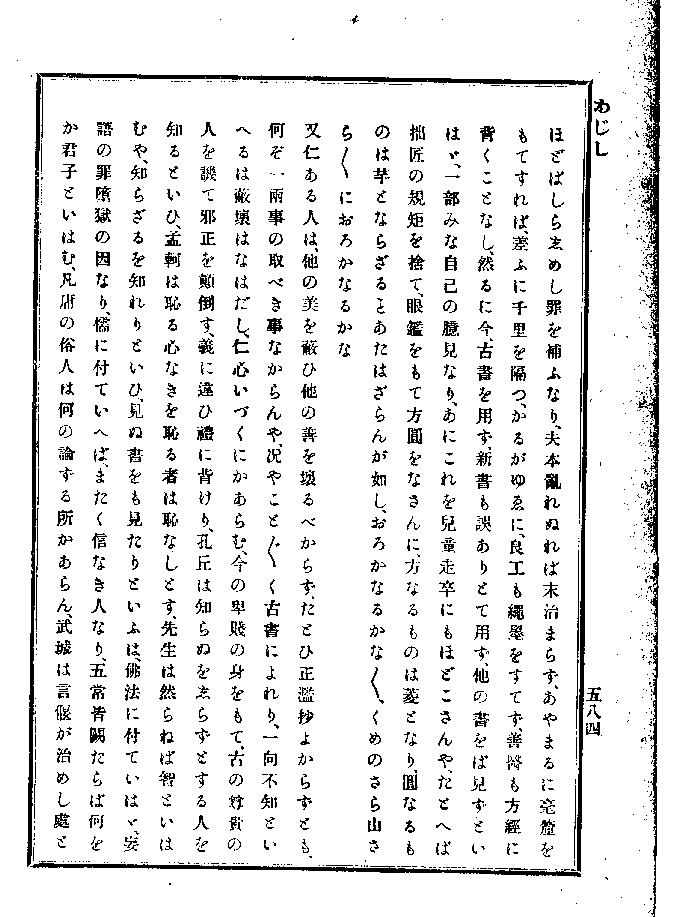 わじし
五八四
ほどばしらゑめし罪を補ふなり、夫本亂れぬれば末治まらず、あやまるに毫釐を
もてすれば、差ふに千里を隔つ、かるがゆゑに、良工も繩墨をすてず、善醫も方經に
背くことなし、然るに今、古書を用ず、新書も誤ありとて用ず、他の書をば見ずとい
はゞ、一部みな自己の臆見なり、あにこれを兒童走卒にもほどこさんや、たとへば
拙匠の規矩を捨て、眼鑑をもて方圓をなさんに、方なるものは菱となり、圓なるも
のは芋とならざることあたはざらんが如し、おろかなるかな〳〵、くめのさら山さ
ら〳〵におろかなるかな
又仁ある人は、他の美を蔽ひ他の善を壊るべからず、たとひ正濫抄よからずとも、
何ぞ一兩事の取べき事なからんや、况やこと〴〵く古書によれり、一向不知とい
へるは蔽壊はなはだし、仁心いづくにかあらむ、今の卑賤の身をもて、古の尊貴の
人を談て邪正を顛倒す、義に違ひ禮に背けり、孔丘は知らぬをゑらずとする人を
知るといひ、孟軻は恥る心なきを恥る者は恥なしとす、先生は然らねば智といは
むや、知らざるを知れりといひ、見ぬ書をも見たりといふは、佛法に付ていはゞ、妄
語の罪墮獄の因なり、儒に付ていへば、またく信なき人なり、五常皆闕たらば何を
か君子といはむ、凡庸の俗人は何の論ずる所かあらん、武城は言偃が治めし處と